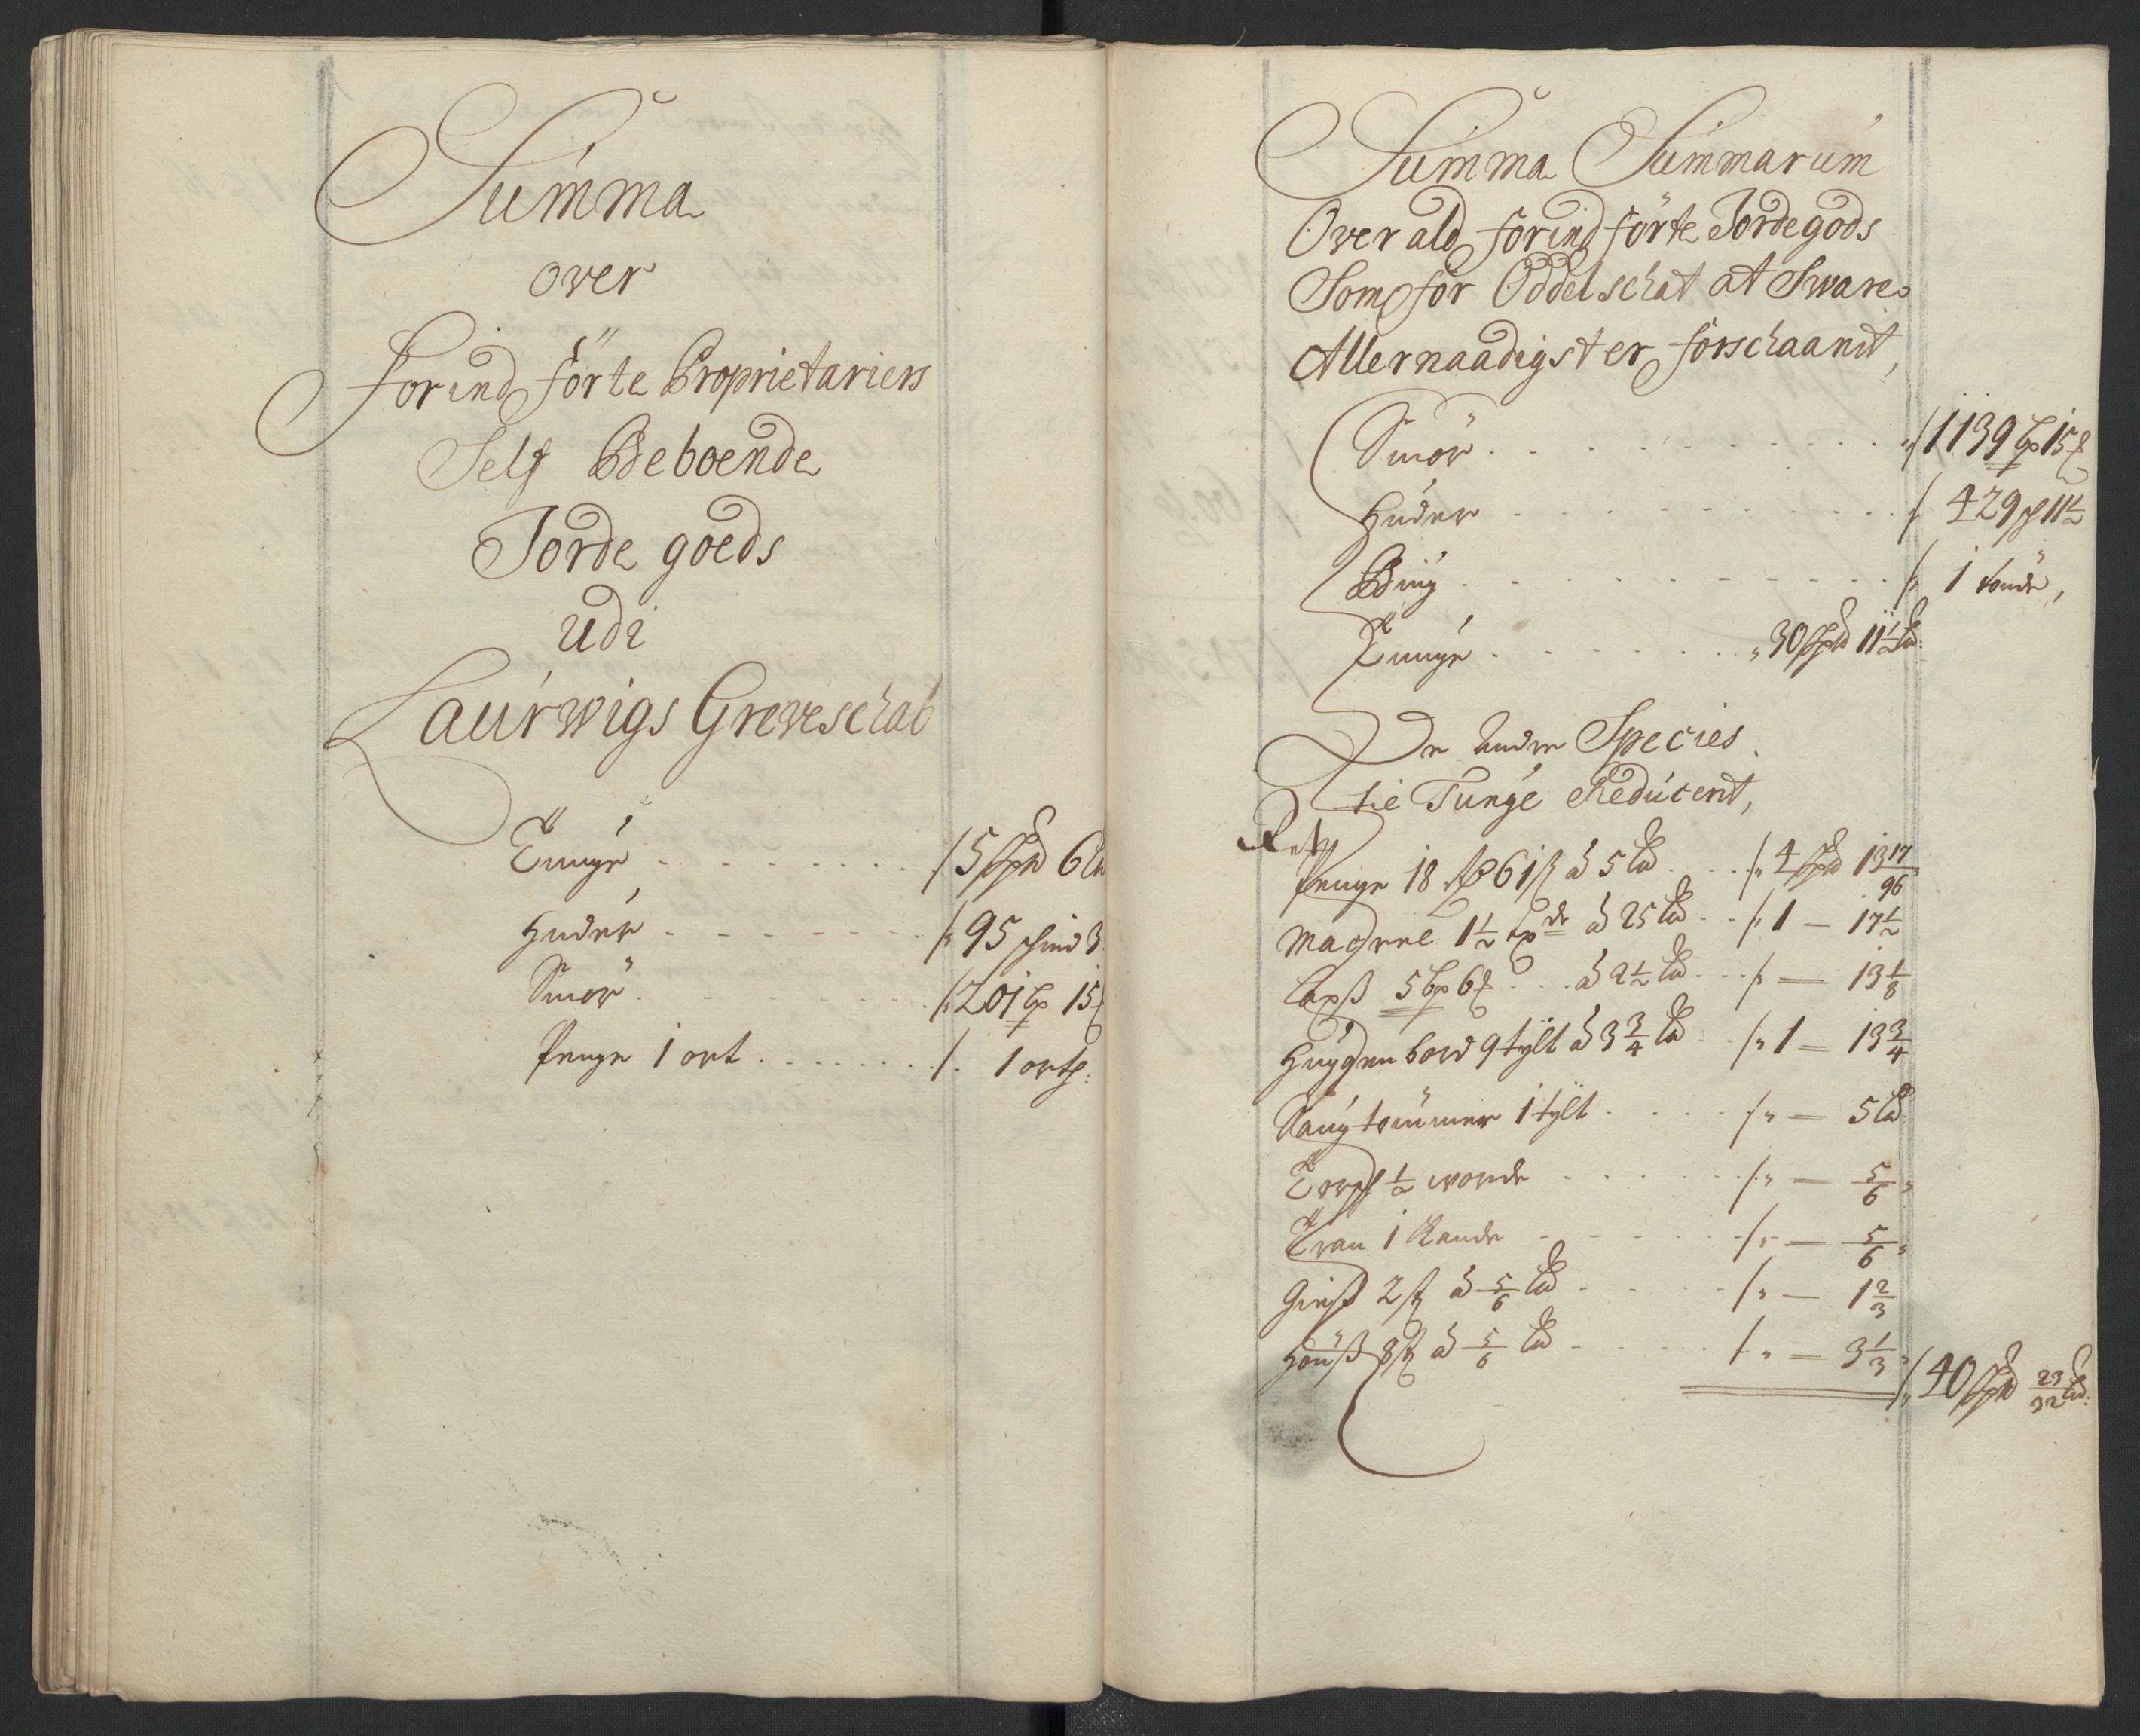 Summa
over
forind förte Proprietariers
Self Beboende
Jorde goeds
udi
Laurwigs Greveschab
Tunge 5 Spd 6 Ld
Huder 95 schind 3
Smör 201 Lp 15
Penge 1 ort 1 ort
Summa Summarum
Over ald forind förte Jordegods
Som for Oddelschat at Sware
Allernaadigst er forschaanit,
Smör 1139 Lp 15
Huder 429 11½
Biug 1 tönde,
Tunge 30 Spd 11½ Ld
De andre Species
tie Tunge Reducerit,
Penge 18 Rd 61 ß à 5 Ld 4 Spd 13 17/96
Macrene 1½ à 25 Ld 1 — 17½
Laxß 5 Lp 6 à 2½ Ld — 13 1/8
Huggenbord 9 tylt à 3¾ Ld 1 — 13¾
Saugtömmer 1 tylt — 5 Ld
Torsch ½ worde — 5/6
Tran 1 Kande — 5/6
Giesß 2 st à 5/6 Ld — 1 2/3
Hönß 8 st à 5/6 Ld — 3 1/3
40 Spd 23/32 Ld